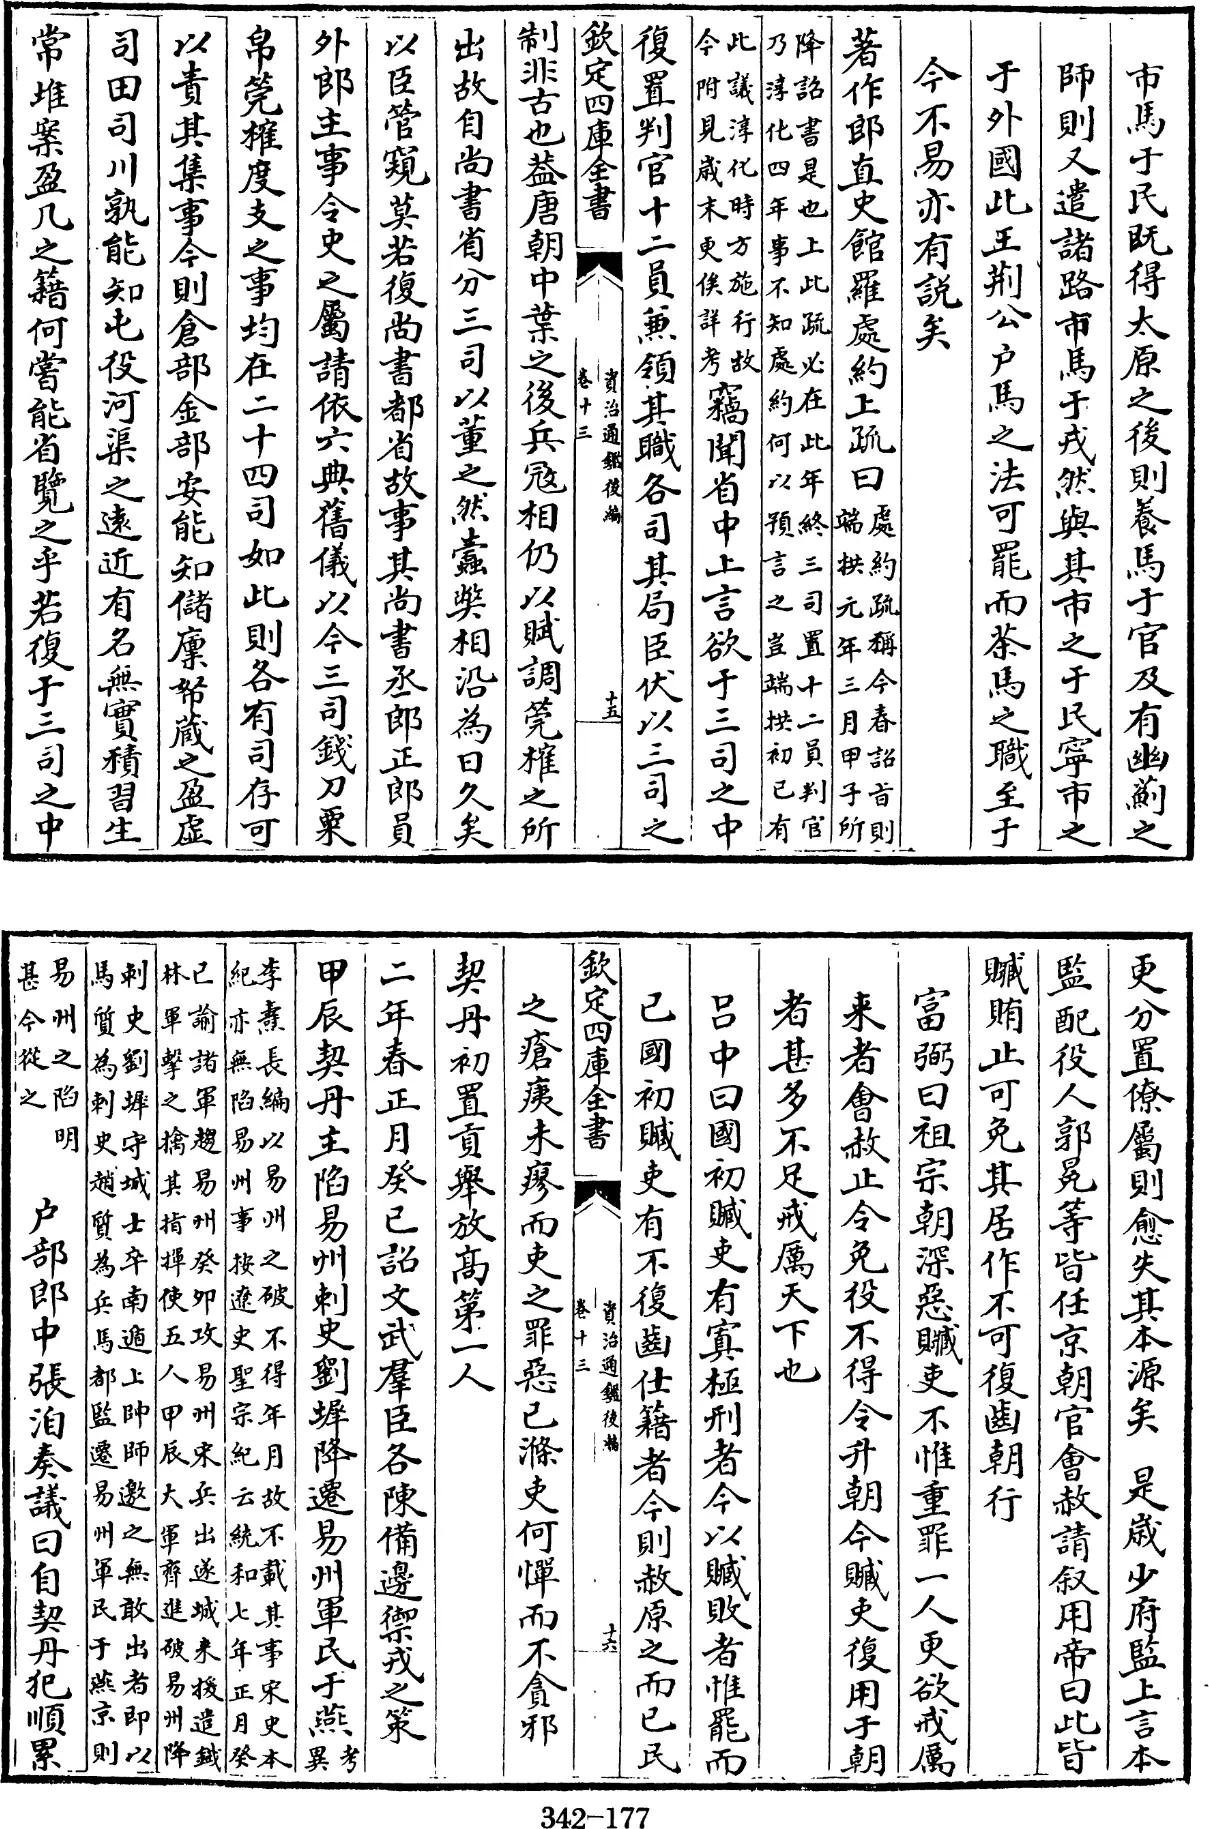 市馬于民既得太原之後則養馬于官及有幽薊之
師則又遣諸路市馬于戎然與其市之于民寧市之
于外國此王荆公户馬之法可罷而茶馬之職至于
今不易亦有説矣
著作郎直史館羅處約上疏曰處約疏稱今春詔旨則
端拱元年三月甲子所
降詔書是也上此疏必在此年終三司置十二員判官
乃淳化四年事不知處約何以預言之豈端拱初已有
此議淳化時方施行故
今附見歲末更俟詳考竊聞省中上言欲于三司之中
復置判官十二員兼領其職各司其局臣伏以三司之
欽定四庫全書
資治通鑑後編
卷十三
十五
制非古也葢唐朝中葉之後兵宼相仍以賦調筦榷之所
出故自尚書省分三司以董之然蠧獘相沿為日久矣
以臣管窺莫若復尚書都省故事其尚書丞郎正郎員
外郎主事令史之屬請依六典舊儀以今三司錢刀粟
帛筦榷度支之事均在二十四司如此則各有司存可
以責其集事今則倉部金部安能知儲廩帑藏之盈虛
司田司川孰能知屯役河渠之遠近有名無實積習生
常堆案盈几之籍何嘗能省覽之乎若復于三司之中
更分置僚屬則愈失其本源矣　是歲少府監上言本
監配役人郭冕等皆任京朝官會赦請叙用帝曰此皆
贓賄止可免其居作不可復齒朝行
富弼曰祖宗朝深惡贓吏不惟重罪一人更欲戒厲
来者會赦止令免役不得令升朝今贓吏復用于朝
者甚多不足戒厲天下也
吕中曰國初贓吏有寘極刑者今以贓敗者惟罷而
已國初贓吏有不復齒仕籍者今則赦原之而已民
欽定四庫全書
資治通鑑後編
卷十三
十六
之瘡痍未瘳而吏之罪惡已滌吏何憚而不貪邪
契丹初置貢舉放髙第一人
二年春正月癸已詔文武羣臣各陳備邊禦戎之策
甲辰契丹主陷易州刺史劉墀降遷易州軍民于燕考
異
李燾長編以易州之破不得年月故不載其事宋史本
紀亦無陷易州事按遼史聖宗紀云統和七年正月癸
已諭諸軍趨易州癸卯攻易州宋兵出遂城来援遣鐵
林軍擊之擒其指揮使五人甲辰大軍齊進破易州降
刺史劉墀守城士卒南遁上帥師邀之無敢出者即以
馬質為刺史趙質為兵馬都監遷易州軍民于燕京則
易州之陷明
甚今從之　户部郎中張洎奏議曰自契丹犯順累
342-177